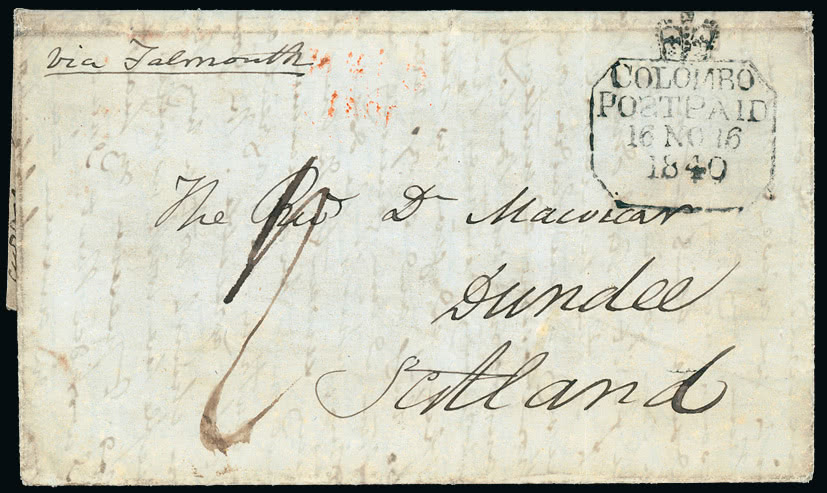 via Falmouth
COLOMBO
POSTPAID
16 NO 16
1840
The Revd Dr Macvicar
Dundee
Scotland